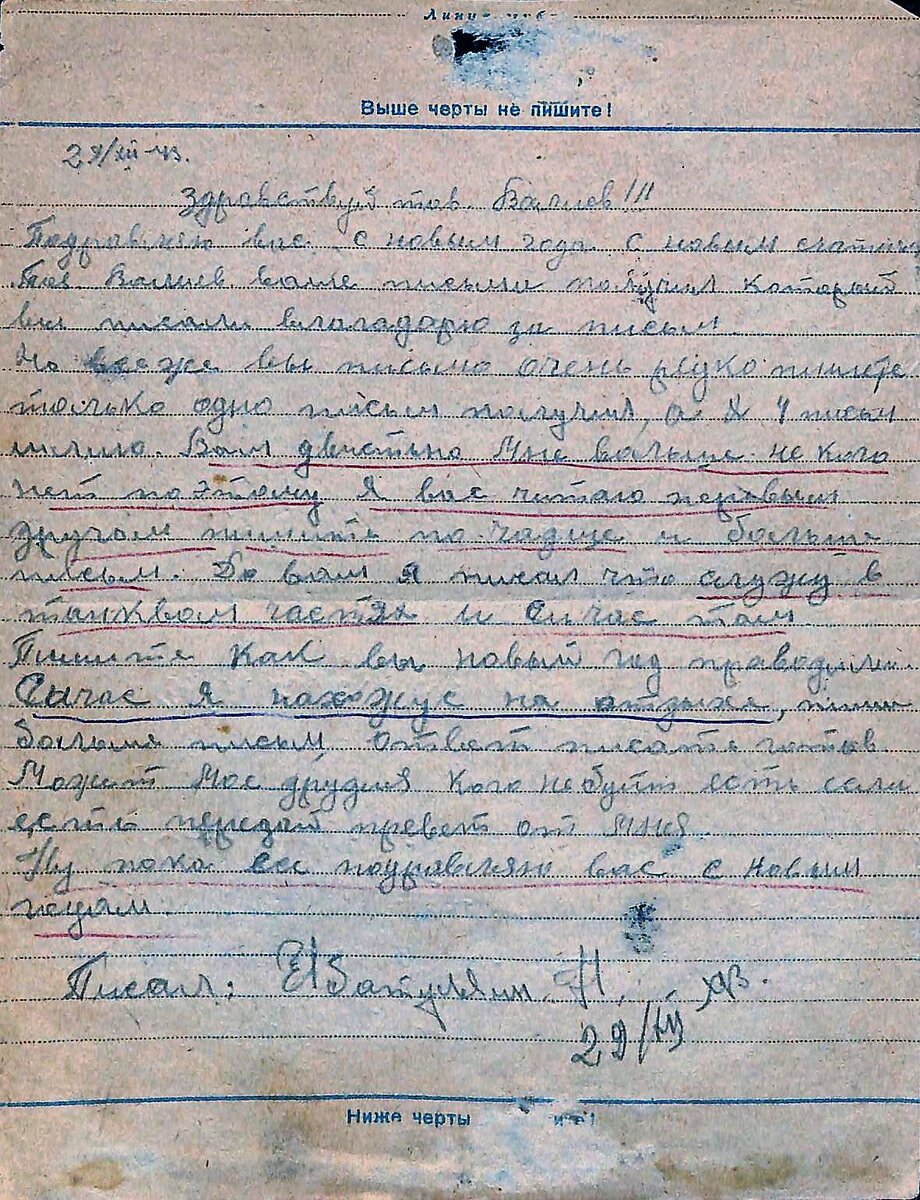 Выше черты не пишите!
29/XII-43.
Здравствуй тов. Валиев!!!
Подровляю вас с новым года с новым
Тов. Валиев ваше письмо получил который
вы писали благадорю за письм.
Но все же вы письмо очень редко пишите
только одно письм получил, а я 4 письм
Вам мне больше не кого
нет поэтому я вас читаю первым
другом пишите по чаще и больше
письм. До вам я писал что служу в
танквом частях и сичас там.
Пишите как вы новый год праводили
Сичас я нахожус на отдыхе, пиши
больше письм ответ писать готов.
Можит мое друзия кого небудть есть если
есть передай превет от мня.
Ну пока все подравляю вас с новым
годам.
Писал: Н.
29/XII 43.
Ниже черты